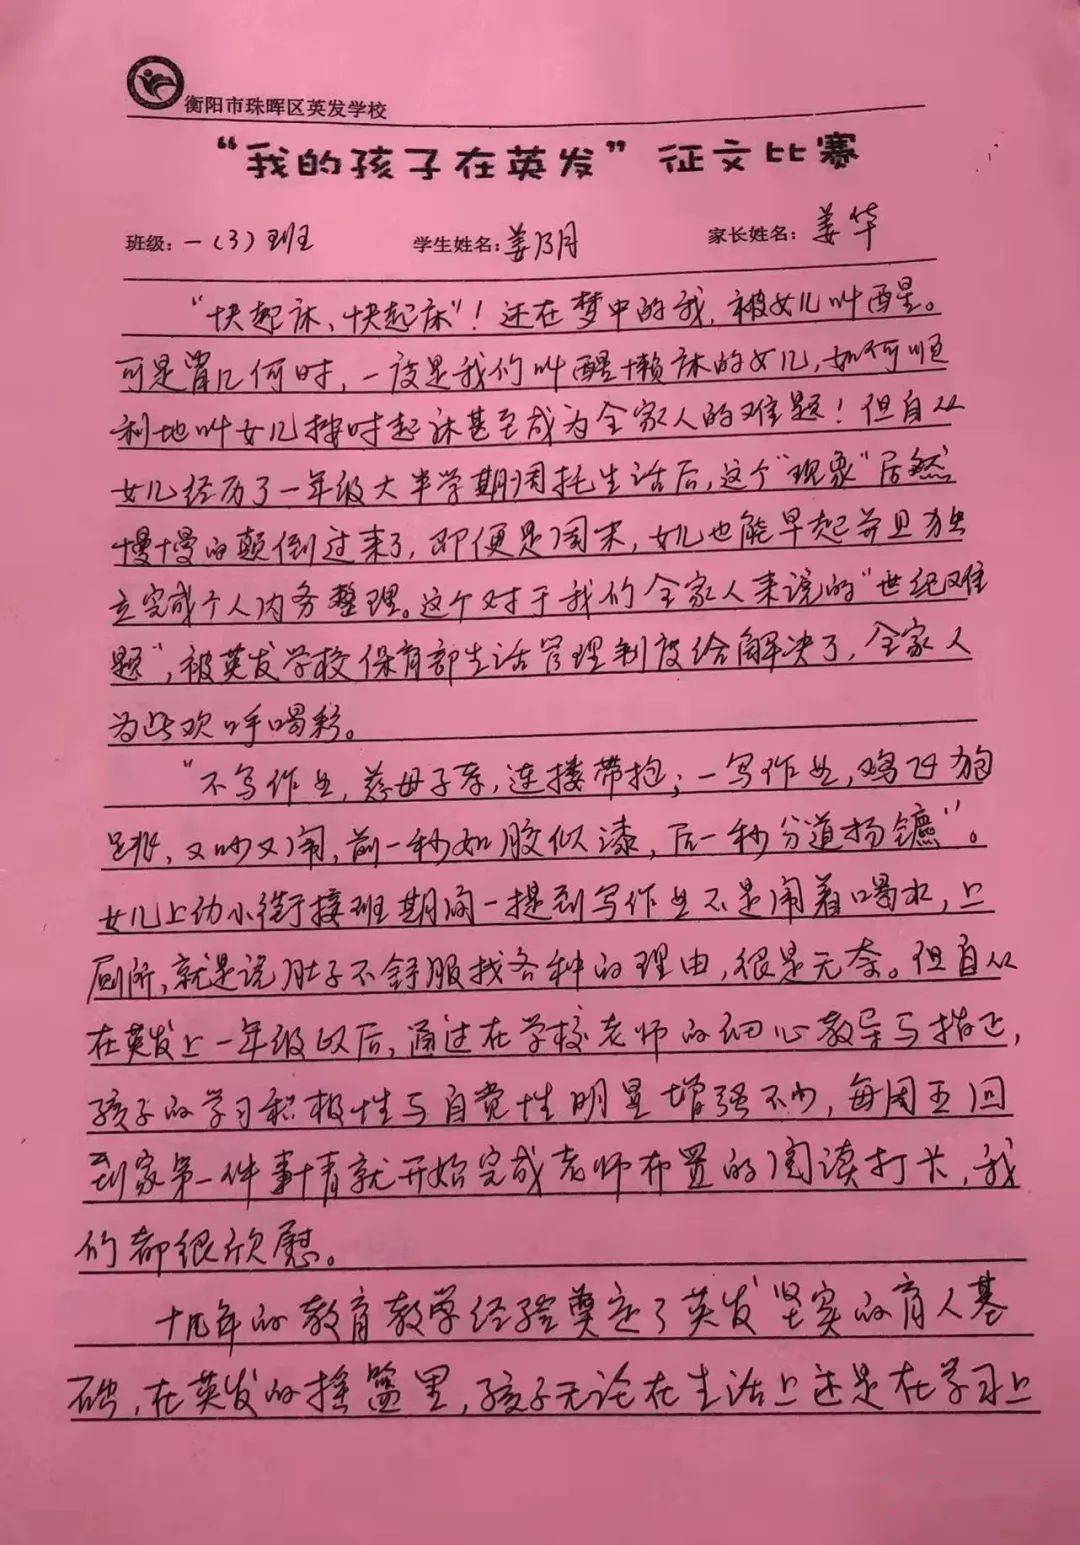 衡阳市珠晖区英发学校
“我的孩子在英发”征文比赛
班级：一（3）班 学生姓名：姜乃月 家长姓名：姜华
“快起床、快起床”！还在梦中的我，被女儿叫醒。
可是曾几何时，一该是我们叫醒懒床的女儿，如何顺
利地叫女儿按时起床甚至成为全家人的难题！但自从
女儿经历了一年级大半学期周托生活后，这个“现象”居然
慢慢的颠倒过来了，即便是周末，女儿也能早起并且独
立完成个人内务整理。这个对于我们全家人来说的“世纪难
题”，被英发学校保育部生活管理制度给解决了，全家人
为此欢呼喝彩。
“不写作业，慈母子孝，连搂带抱；一写作业，鸡飞狗
跳，又吵又闹，前一秒如胶似漆，后一秒分道扬镳”。
女儿上幼小衔接班期间一提到写作业不是闹着喝水，上
厕所，就是说肚子不舒服找各种的理由，很是无奈。但自从
在英发上一年级以后，通过在学校老师的细心教导与指正，
孩子的学习积极性与自觉性明显增强不少，每周五回
到家第一件事情就开始完成老师布置的阅读打卡，我
们都很欣慰。
十几年的教育教学经验奠定了英发坚实的育人基
础，在英发的摇篮里，孩子无论在生活上还是在学习上